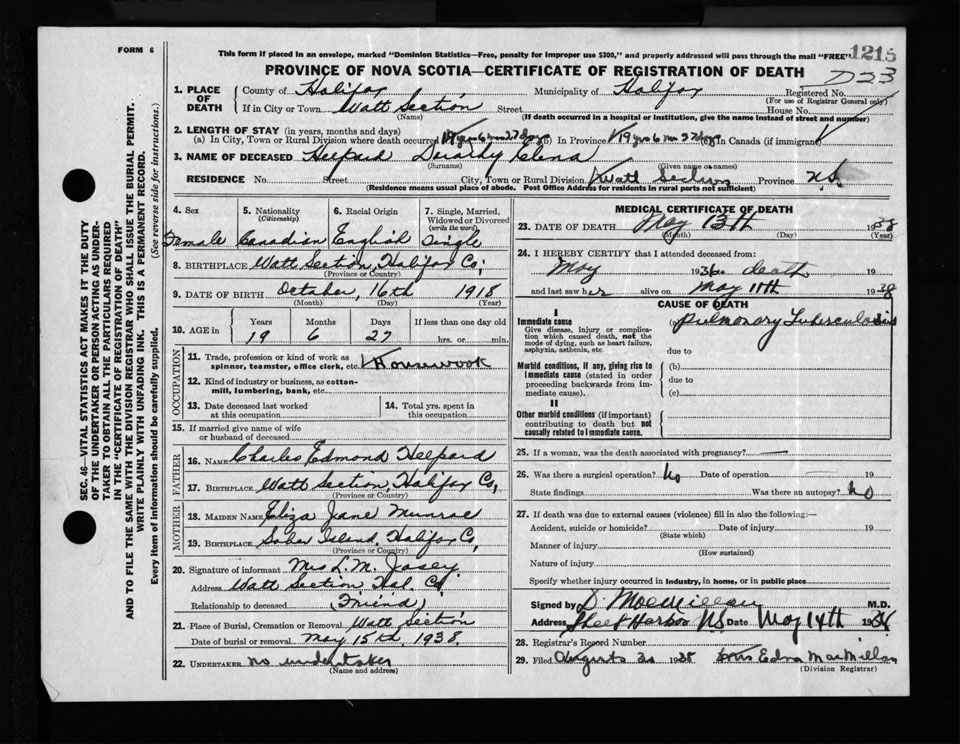 FORM 6
This form if placed in an envelope, marked "Dominion Statistics—Free, penalty for improper use $300," and properly addressed will pass through the mail "FREE"
1215
D23
PROVINCE OF NOVA SCOTIA—CERTIFICATE OF REGISTRATION OF DEATH
1. PLACE OF DEATH
County of Halifax Municipality of Halifax Registered No.
(For use of Registrar General only)
If in City or Town Watt Section Street House No.
(Name) (If death occurred in a hospital or institution, give the name instead of street and number)
2. LENGTH OF STAY (in years, months and days)
(a) In City, Town or Rural Division where death occurred 19 yrs 6 mos 27 days (b) In Province 19 yrs 6 m 27 days In Canada (if immigrant)
3. NAME OF DECEASED Heepard Dorothy Elena
(Surname) (Given name or names)
RESIDENCE No. Street City, Town or Rural Division Watt Section Province N.S.
(Residence means usual place of abode. Post Office Address for residents in rural parts not sufficient)
SEC. 46—VITAL STATISTICS ACT MAKES IT THE DUTY
OF THE UNDERTAKER OR PERSON ACTING AS UNDER-
TAKER TO OBTAIN ALL THE PARTICULARS REQUIRED
IN THE "CERTIFICATE OF REGISTRATION OF DEATH"
AND TO FILE THE SAME WITH THE DIVISION REGISTRAR WHO SHALL ISSUE THE BURIAL PERMIT.
WRITE PLAINLY WITH UNFADING INK. THIS IS A PERMANENT RECORD.
Every item of information should be carefully supplied. (See reverse side for instructions.)
4. Sex 5. Nationality 6. Racial Origin 7. Single, Married,
(Citizenship) Widowed or Divorced
(write the word)
Female Canadian English Single
8. BIRTHPLACE Watt Section, Halifax Co;
(Province or Country)
9. DATE OF BIRTH October, 16th 1918
(Month) (Day) (Year)
10. AGE in Years Months Days If less than one day old
19 6 27 hrs. or min.
OCCUPATION
11. Trade, profession or kind of work as
spinner, teamster, office clerk, etc. Housework
12. Kind of industry or business, as cotton-
mill, lumbering, bank, etc.
13. Date deceased last worked at this occupation
14. Total yrs. spent in this occupation
15. If married give name of wife
or husband of deceased
FATHER
16. NAME Charles Edmond Heepard
17. BIRTHPLACE Watt Section, Halifax Co,
(Province or Country)
MOTHER
18. MAIDEN NAME Eliza Jane Munroe
19. BIRTHPLACE Sober Island. Halifax Co,
(Province or Country)
20. Signature of informant Mrs L. M. Josey
Address Watt Section Hal. Co
Relationship to deceased (Friend)
21. Place of Burial, Cremation or Removal Watt Section
Date of burial or removal May 15th 1938.
22. UNDERTAKER no undertaker
(Name and address)
MEDICAL CERTIFICATE OF DEATH
23. DATE OF DEATH May 13th 1938
(Month) (Day) (Year)
24. I HEREBY CERTIFY that I attended deceased from:
May 1936 to death 19
and last saw her alive on May 11th 1938
CAUSE OF DEATH
I
Immediate cause (a) Pulmonary Tuberculosis
Give disease, injury or complica-
tion which caused death, not the
mode of dying, such as heart failure,
asphyxia, asthenia, etc.
due to
Morbid conditions, if any, giving rise to
immediate cause (stated in order
proceeding backwards from im-
mediate cause).
(b)
due to
(c)
II
Other morbid conditions (if important)
contributing to death but not
causally related to immediate cause.
25. If a woman, was the death associated with pregnancy? —
26. Was there a surgical operation? No Date of operation 19
State findings Was there an autopsy? No
27. If death was due to external causes (violence) fill in also the following:—
Accident, suicide or homicide? Date of injury 19
(State which)
Manner of injury
(How sustained)
Nature of injury
Specify whether injury occurred in industry, in home, or in public place
Signed by D. MacMillan M.D.
Address Sheet Harbor NS Date May 14th 1938
28. Registrar's Record Number
29. Filed August 1938 Edna MacMillan
(Division Registrar)